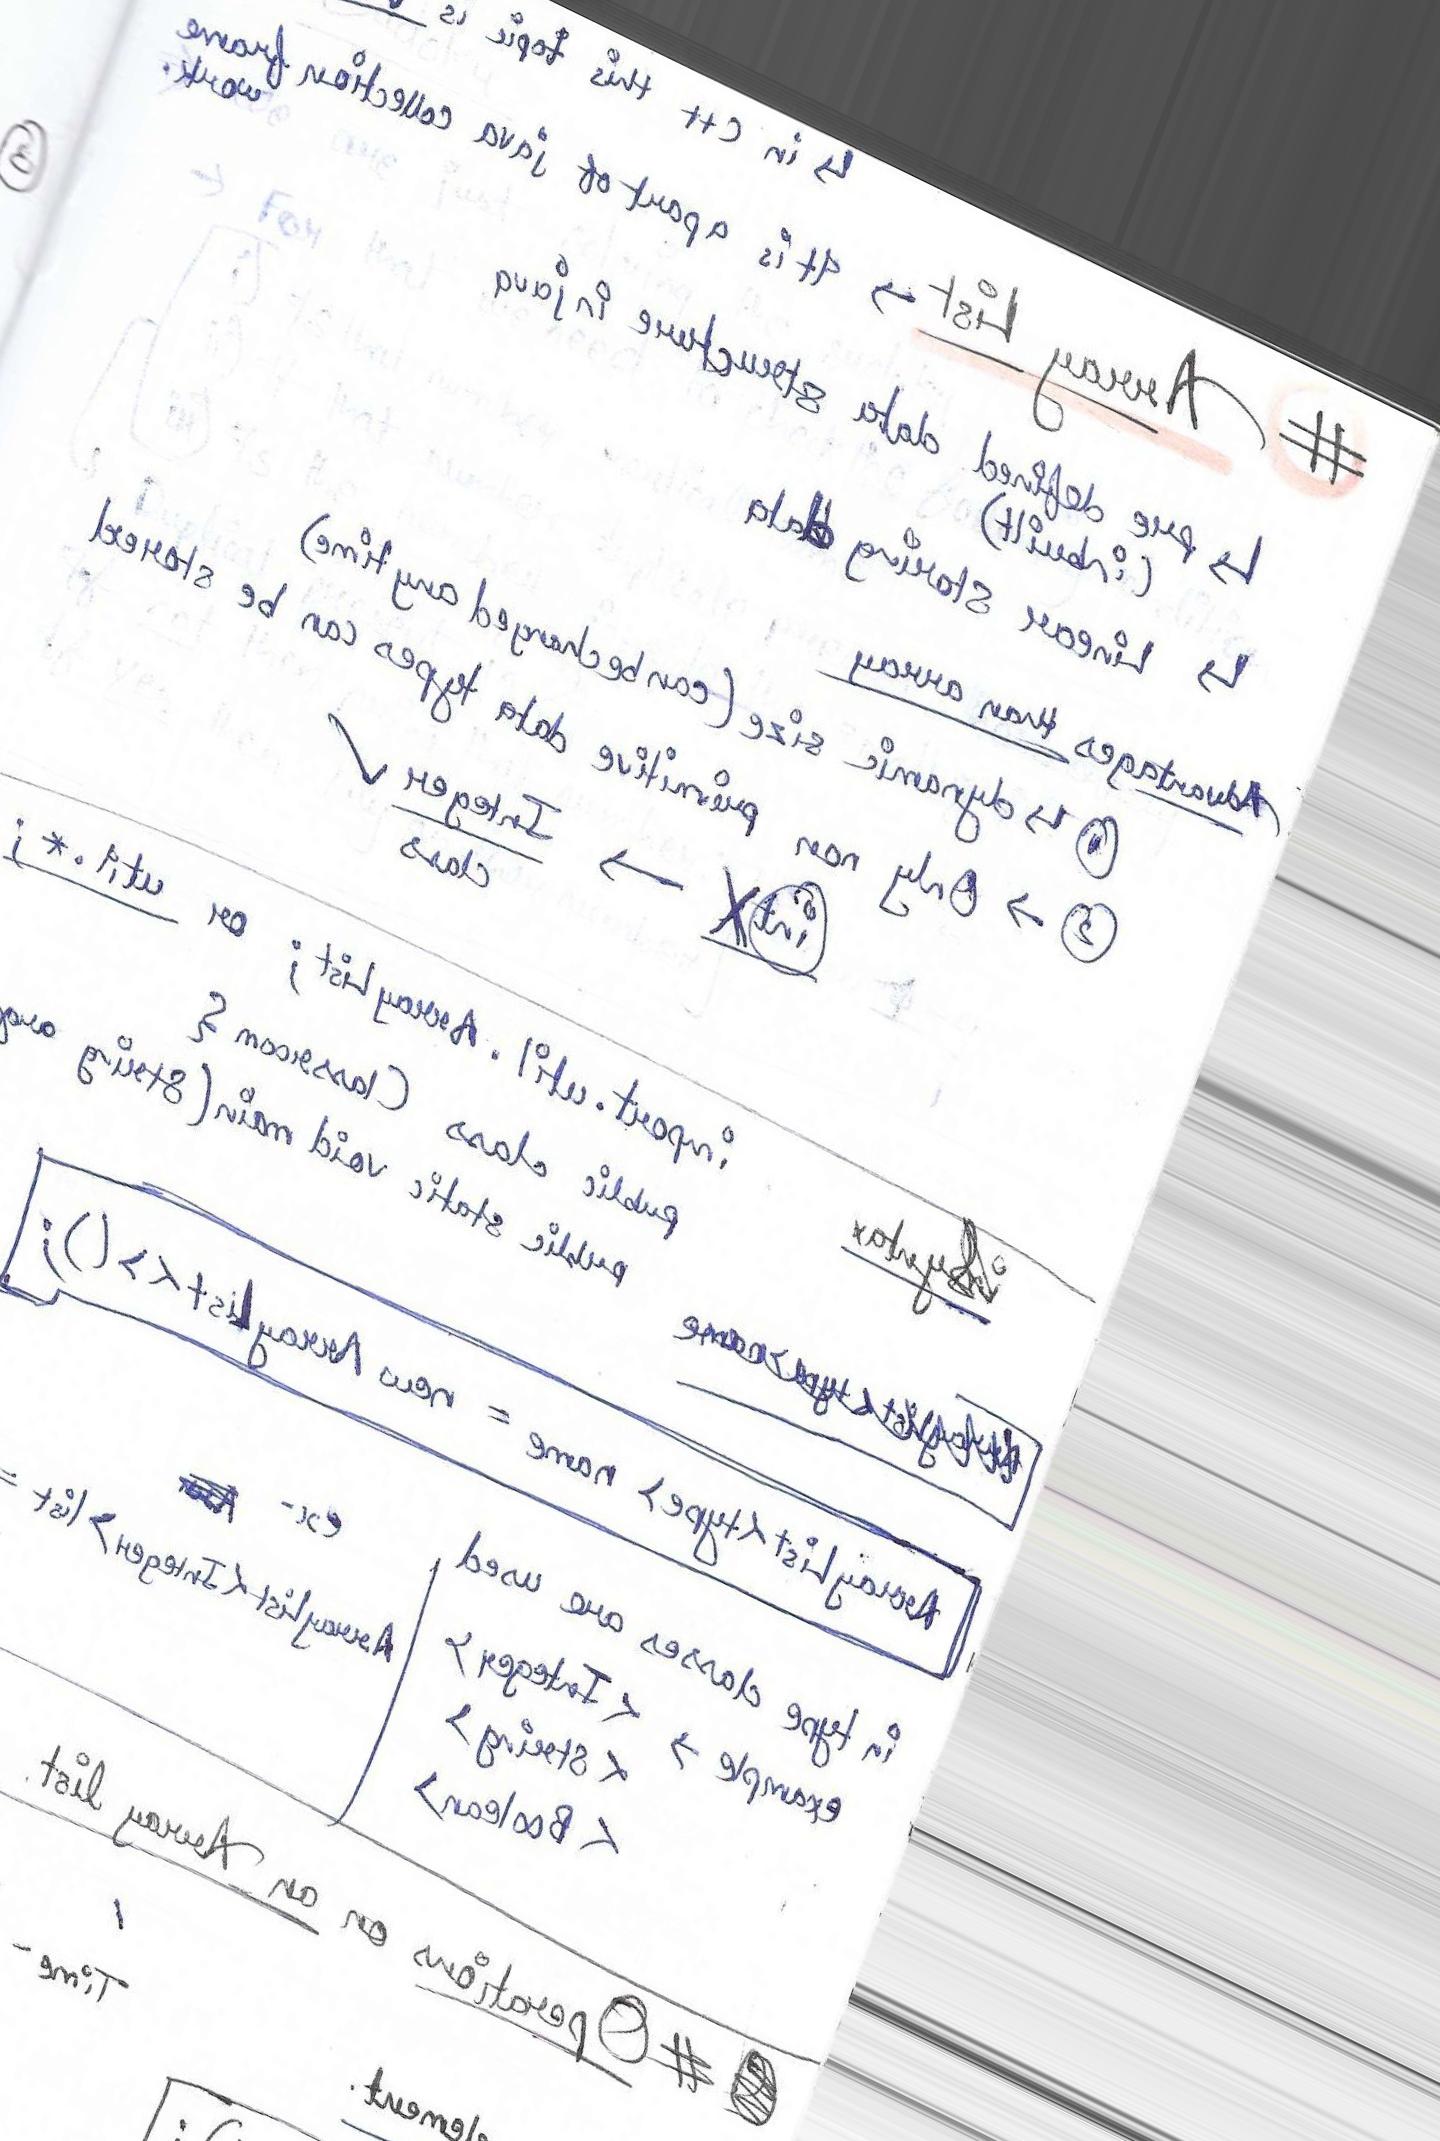 ↳ in C++ this topic is
# Array List → It is a part of java collection frame work.
↳ pre defined data structure in java
(inbuilt)
↳ Linear storing data
Advantages than array
① ↳ dynamic size (can be changed anytime)
② → Only non primitive data types can be stored
int X → Integer ✓
class
import.util.ArrayList; or util.*;
public class Classroom {
public static void main(String
Syntax
ArrayList<type> name = new ArrayList<>();
in type classes are used
example → <Integer>
<String>
<Boolean>
ex-
ArrayList<Integer> list =
# Operations on an Array list.
Time-
element.